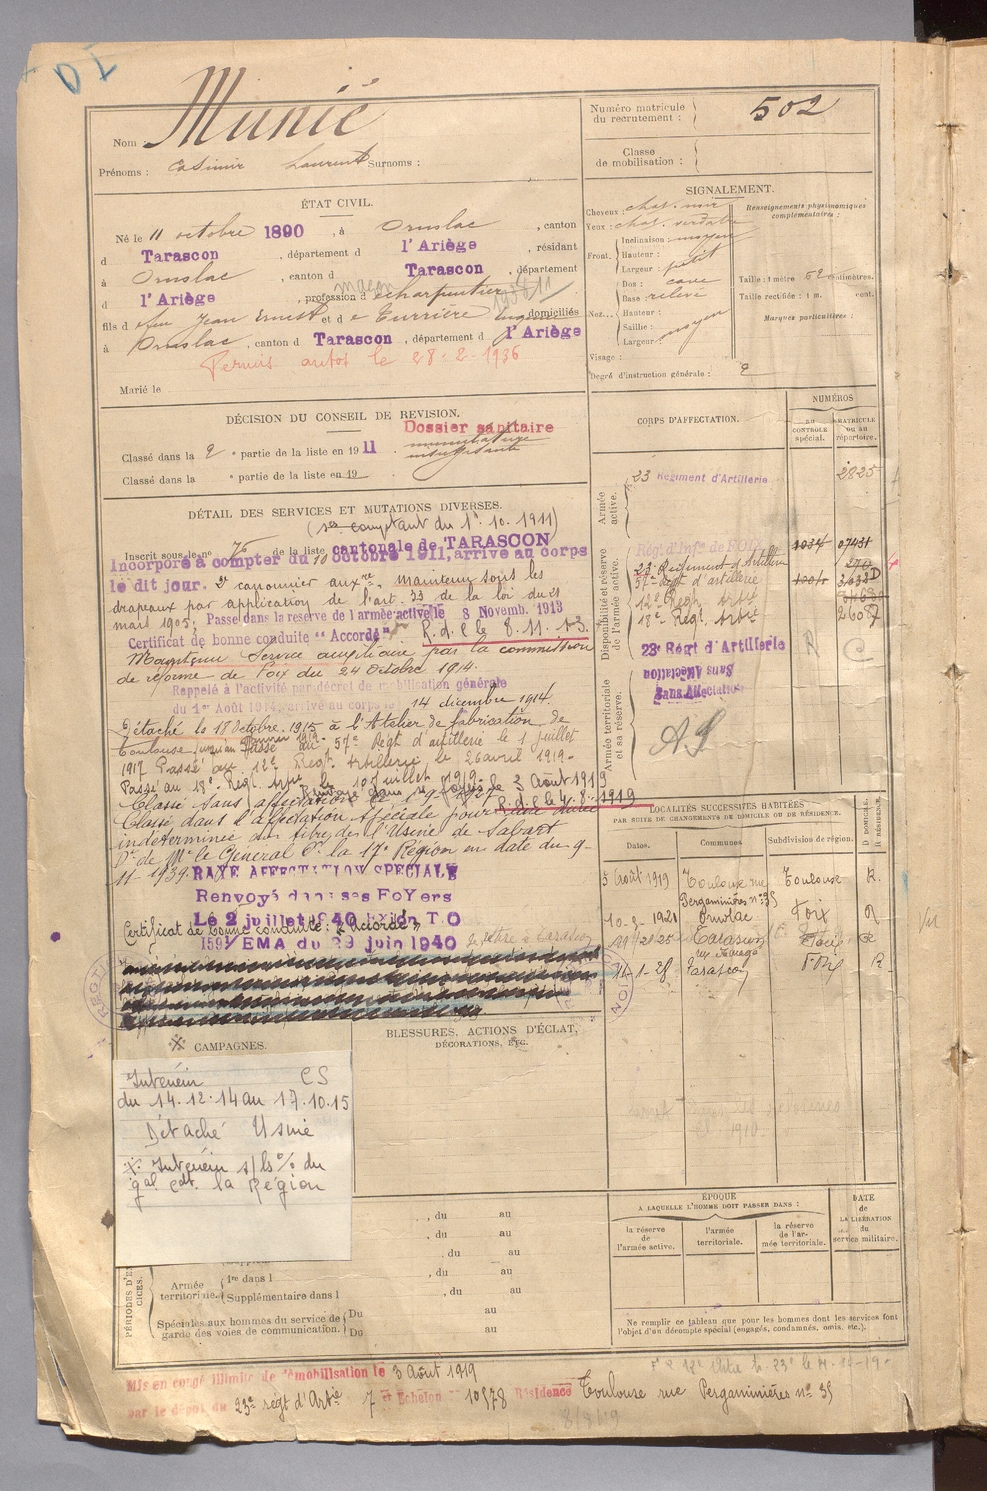 Nom Munié
Prénoms : Casimir Laurent Surnoms :
Numéro matricule du recrutement : 502
Classe de mobilisation :
ÉTAT CIVIL.
Né le 11 octobre 1890, à Ornolac, canton
d Tarascon, département d l'Ariège, résidant
à Ornolac, canton d Tarascon, département
d l'Ariège, profession d charpentier
maçon
fils d feu Jean Ernest et d e Turrière Eugénie domiciliés
à Ornolac, canton d Tarascon, département d l'Ariège
Permis autos le 28-2-1936
Marié le
SIGNALEMENT.
Cheveux : chat. noir
Yeux : chat. verdâtre
Front. Inclinaison : moyen
Hauteur :
Largeur : petit
Nez... Dos : cave
Base : relevé
Hauteur :
Saillie :
Largeur : moyen
Visage :
Renseignements physionomiques complémentaires :
Taille : 1 mètre 62 centimètres.
Taille rectifiée : 1 m. cent.
Marques particulières :
Degré d'instruction générale : 2
DÉCISION DU CONSEIL DE REVISION.
Dossier sanitaire
Classé dans la 2e partie de la liste en 1911.
musculature
insuffisante
Classé dans la e partie de la liste en 19
DÉTAIL DES SERVICES ET MUTATIONS DIVERSES.
(se comptant du 1r. 10. 1911)
Inscrit sous le no 76 de la liste cantonale de TARASCON
Incorporé à compter du 10 octobre 1911, arrive au corps
le dit jour. 2e canonnier auxre, maintenu sous les
drapeaux par application de l'art. 33 de la loi du 21
mars 1905. Passé dans la réserve de l'armée active le 8 Novemb. 1913
Certificat de bonne conduite "Accordé" R.d.c le 8.11.13.
Maintenu Service auxiliaire par la commission
de réforme de Foix du 24 Octobre 1914.
Rappelé à l'activité par décret de mobilisation générale
du 1er Août 1914, arrivé au corps le 14 décembre 1914.
Détaché le 18 Octobre 1915 à l'Atelier de fabrication de
Toulouse jusqu'au
Passé au 57e Régt d'artillerie le 1 juillet
1917 Passé au 12e Régt. Artillerie le 26 avril 1919.
Passé au 18e Régt. Artie le 10 juillet 1919.
Renvoyé dans ses foyers le 3 Août 1919
Classé sans affectation le
R.d.c le 4.8.1919
Classé dans l'affectation spéciale pour une durée
indéterminée au titre de l'Usine de Sabart
Dn de Mr le Général Ct la 17e Région en date du 9-
11-1939. RAYÉ AFFECTATION SPECIALE
Renvoyé dans ses FoYers
Le 2 juillet 1940
Certificat de bonne conduite : "accordé"
159 /EMA du 29 juin 1940
CORPS D'AFFECTATION.
NUMÉROS
AU CONTRÔLE spécial.
MATRICULE OU AU répertoire.
Armée active.
23 Régiment d'Artillerie 2825
Disponibilité et réserve de l'armée active.
Régt d'Infie de FOIX 1034 07431
23e Régiment d'Artillerie
57e Régt d'artillerie
12e Régt Artie
18e Régt. Artie 26087
23e Régt d'Artillerie
Sans Affectation
Sans Affectation
Armée territoriale et sa réserve.
AS
R
C
LOCALITÉS SUCCESSIVES HABITÉES
PAR SUITE DE CHANGEMENTS DE DOMICILE OU DE RÉSIDENCE.
Dates. Communes. Subdivision de région. D. DOMICILE. R. RÉSIDENCE.
5 Août 1919 Toulouse rue Pergaminières no 35 Toulouse R.
10-2-1921 Ornolac Foix R
Tarascon Foix R
Tarascon Foix R
※ CAMPAGNES.
Intérieur CS
du 14.12.14 au 17.10.15
Détaché Usine
※ Intérieur
gal Cdt. la Région
BLESSURES, ACTIONS D'ÉCLAT, DÉCORATIONS, ETC.
, du au
, du au
, du au
Armée territoriale. 1re dans l , du au
Supplémentaire dans l , du au
Spéciales aux hommes du service de garde des voies de communication. Du au
Du au
ÉPOQUE
A LAQUELLE L'HOMME DOIT PASSER DANS :
la réserve de l'armée active.
l'armée territoriale.
la réserve de l'armée territoriale.
DATE de LA LIBÉRATION du service militaire.
Ne remplir ce tableau que pour les hommes dont les services font l'objet d'un décompte spécial (engagés, condamnés, omis, etc.).
Mis en congé illimité de démobilisation le 3 Août 1919
par le dépôt du 23e régt d'Artie 7e Echelon 10578 Résidence Toulouse rue Pergaminières no 35